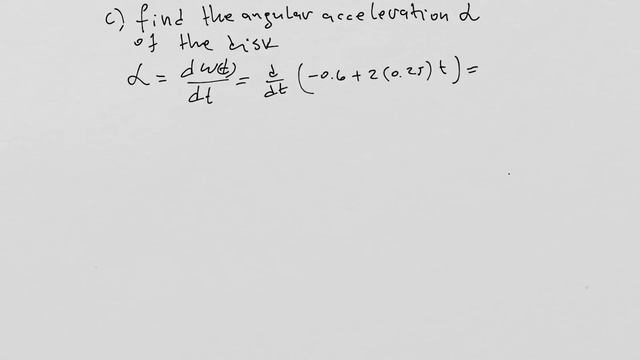 c) find the angular acceleration α
of the disk
α = dω(t)/dt = d/dt (-0.6 + 2(0.25) t) =